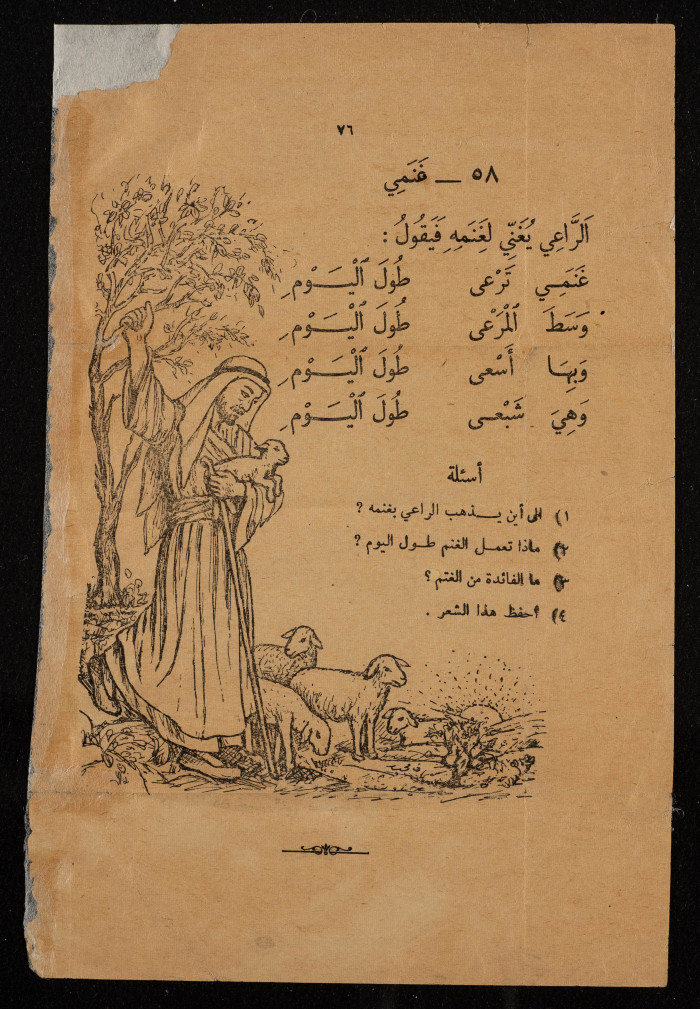 ٧٦
٥٨ ــ غَنَمِي
اَلرَّاعِي يُغَنِّي لِغَنَمِهِ فَيَقُولُ :
غَنَمِـي تَرْعى طُولَ ٱلْيَـوْمِ
وَسَطَ ٱلْمَرْعى طُولَ ٱلْيَـوْمِ
وَبِهَا أَسْعى طُولَ ٱلْيَـوْمِ
وَهِيَ شَبْعـى طُولَ ٱلْيَـوْمِ
أسئلة
١) الى أين يـذهب الراعي بغنمه ؟
٢) ماذا تعمـل الغنم طـول اليوم ؟
٣) ما الفائدة من الغنم ؟
٤) أحفظ هذا الشعر .